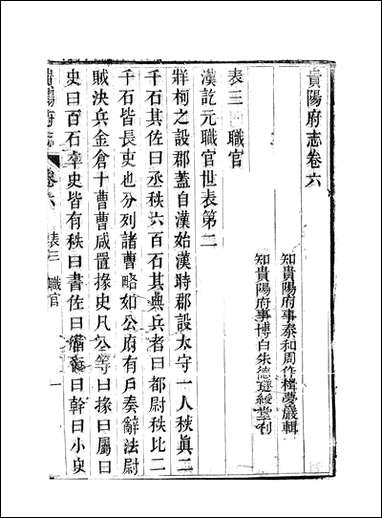 貴陽府志卷六
知貴陽府事泰和周作楫夢巖輯
知貴陽府事博白朱德璲綬堂刋
表三　職官
漢訖元職官世表第二
牂柯之設郡蓋自漢始漢時郡設太守一人秩眞二
千石其佐曰丞秩六百石其典兵者曰都尉秩比二
千石皆長吏也分列諸曹略如公府有戸奏辭法尉
賊決兵金倉十曹曹咸置掾史凡公等曰掾曰屬曰
史曰百石卒史皆有秩曰書佐曰循行曰幹曰小史
貴陽府志 卷六 表三 職官 一